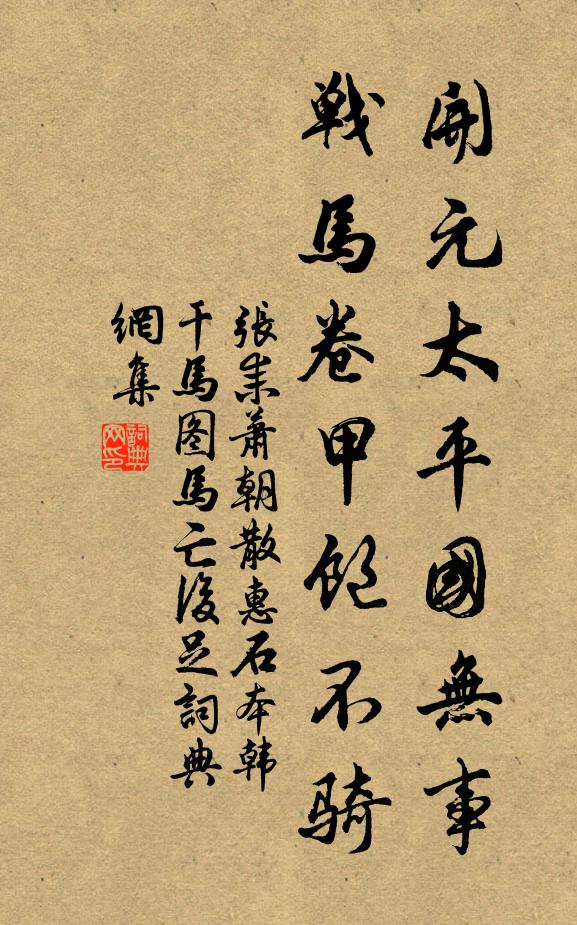 開元太平國無事
戰馬卷甲飽不騎
張耒蕭朝散惠石本韩
干馬图馬亡後足詞典
網集
詞典
网印